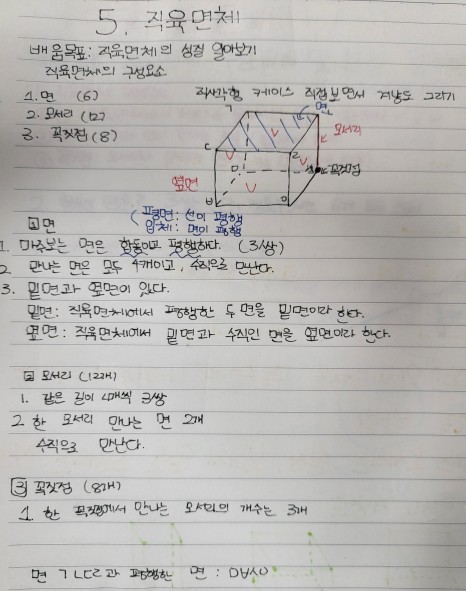 5. 직육면체
배움목표: 직육면체의 성질 알아보기
직육면체의 구성요소
1. 면 (6)
직사각형 케이스 직접 보면서 겨냥도 그리기
2. 모서리 (12)
3. 꼭짓점 (8)
ㄱ
면
모서리
ㄷ
ㄹ
ㅁ
꼭짓점
옆면
ㅂ
평면: 선이 평행
입체: 면이 평행
1 면
1. 마주보는 면은 합동이고 평행하다. (3쌍)
2 만나는 면은 모두 4개이고, 수직으로 만난다.
3. 밑면과 옆면이 있다.
밑면: 직육면체에서 평행한 두 면을 밑면이라 한다.
옆면: 직육면체에서 밑면과 수직인 면을 옆면이라 한다.
2 모서리 (12개)
1. 같은 길이 4개씩 3쌍
2 한 모서리 만나는 면 2개
수직으로 만난다.
3 꼭짓점 (8개)
1. 한 꼭짓점에서 만나는 모서리의 개수는 3개
면 ㄱㄴㄷㄹ과 평행한 면 : ㅁㅂㅅㅇ